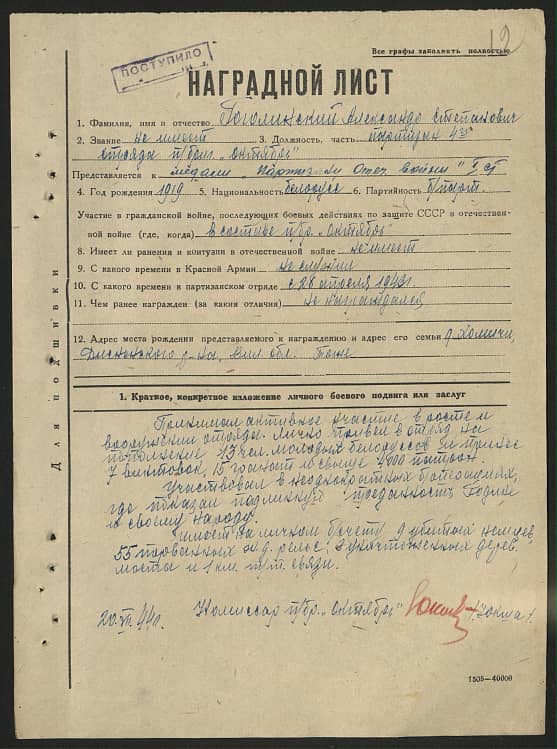 12
Все графы заполнять полностью
ПОСТУПИЛО
НАГРАДНОЙ ЛИСТ
1. Фамилия, имя и отчество Гоголинский Александр Степанович
2. Звание не имеет 3. Должность, часть партизан 4го
отряда п/бриг. „Октябрь"
Представляется к медали „Партизан Отеч. войны" I ст
4. Год рождения 1919 5. Национальность белорус 6. Партийность б/парт.
Участие в гражданской войне, последующих боевых действиях по защите СССР и отечествен-
ной войне (где, когда) в составе п/бр. „Октябрь"
8. Имеет ли ранения и контузии в отечественной войне не имеет
9. С какого времени в Красной Армии не служил
10. С какого времени в партизанском отряде с 28 апреля 1943 г.
11. Чем ранее награжден (за какия отличия) не награждался
12. Адрес места рождения представляемого к награждению и адрес его семьи д. Холмичи,
р-на, обл.
Для подшивки
1. Краткое, конкретное изложение личного боевого подвига или заслуг
Принимал активное участие в росте и
вооружении отряда. Лично привел в отряд на
пополнение 13 чел. молодых белоруссов и принес
7 винтовок, 15 гранат и свыше 4000 патрон.
Участвовал в неоднократных операциях,
где показал подлинную преданность Родине
и своему народу.
Имеет на личном счету 9 убитых немцев,
55 порванных ж.д. рельс, 3 уничтоженных дерев.
моста и 1 км. связи.
20.VII.44 г. Комиссар п/бр. „Октябрь"
1505—40000